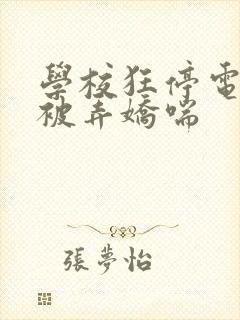 學校狂停電
被弄嬌喘
張夢怡